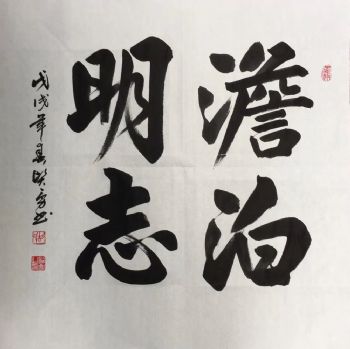 澹泊
明志
戊戌年春